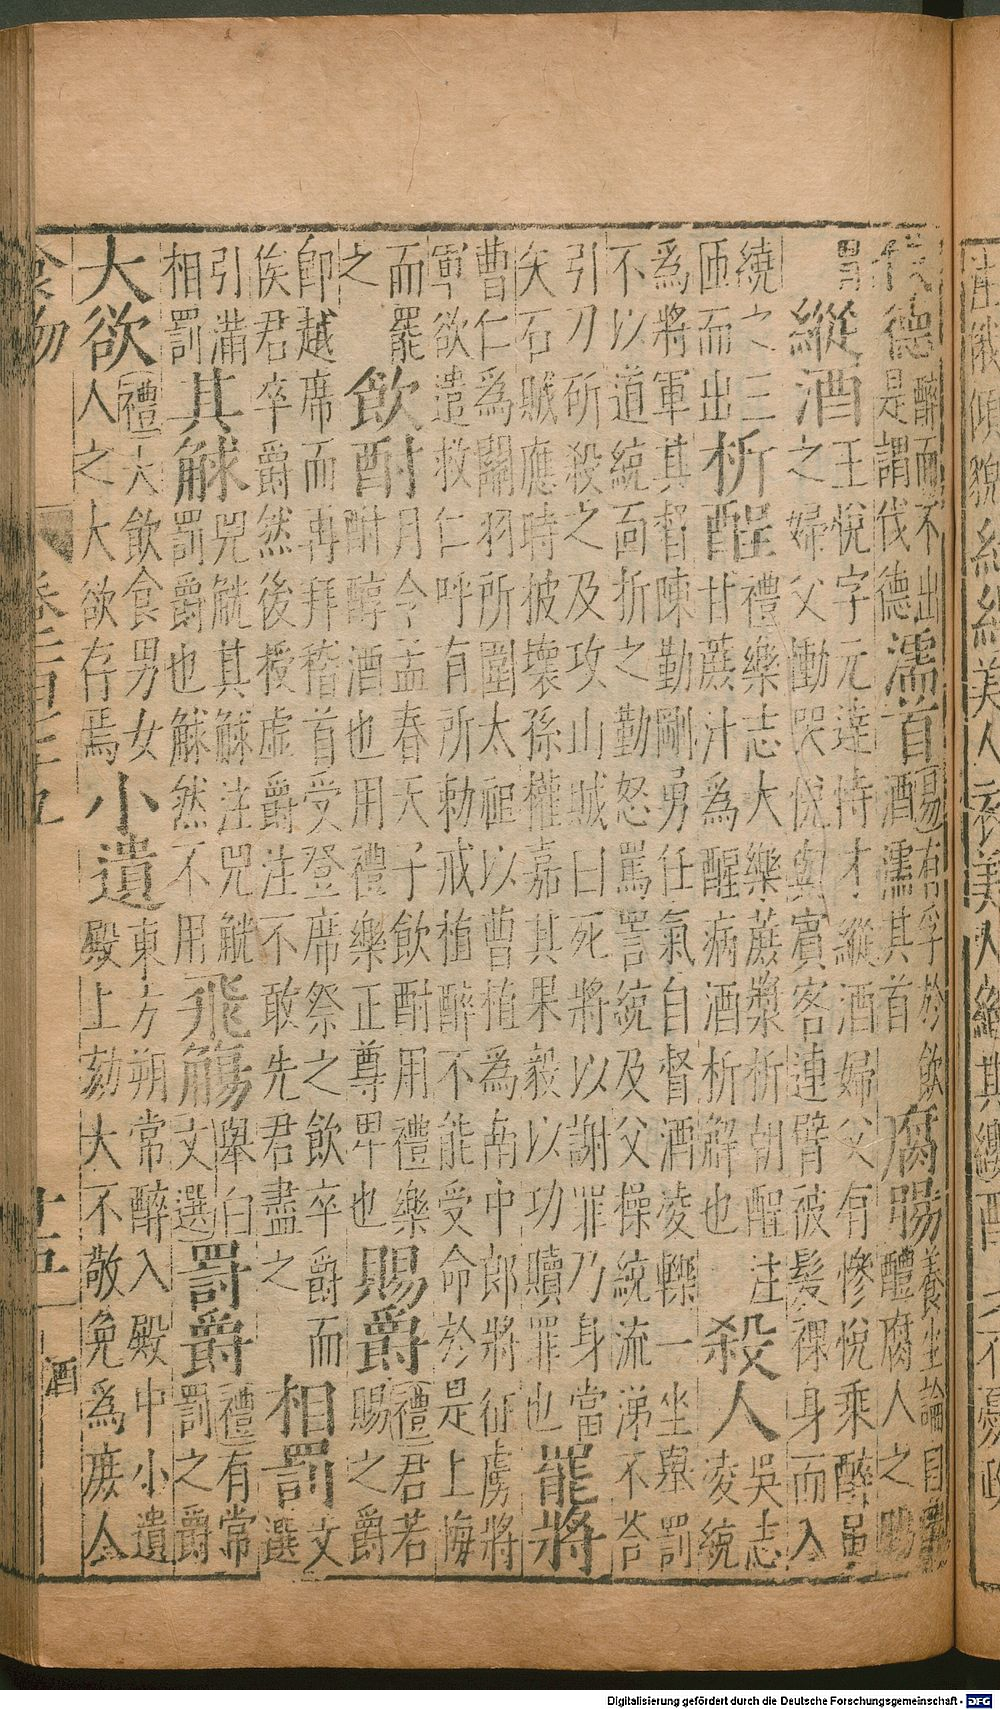 伐德 醉而不出 是謂伐德 濡首 易有孚於飲 酒濡其首 腐腸 養生論目 醴腐人之腸
胃 縱酒 王悅字元達恃才縱酒婦父有慘悅乘醉弔 之婦父慟哭悅與賓客連臂被髮裸身而入
繞之三 匝而出 析酲 禮樂志大樂蔗漿析朝酲注 甘蔗汁為酲病酒析解也 殺人 吳志 凌統
為將軍其督陳勤剛勇任氣自督酒凌轢一坐舉罰 不以道統面折之勤怒罵詈統及父操統流涕不荅
引刀所殺之及攻山賊曰死將以謝罪乃身當 矢石賊應時披壞孫權嘉其果毅以功贖罪也 罷將
曹仁為關羽所圍太祖以曹植為南中郎將征虜將 軍欲遣救仁呼有所勅戒植醉不能受命於是上悔
而罷 之 飲酎 月令孟春天子飲酎用禮樂 酎醇酒也用禮樂正尊卑也 賜爵 禮君若 賜之爵
即越席而再拜稽首受登席祭之飲卒爵而 俟君卒爵然後授虛爵注不敢先君盡之 相罰 文 選
引滿 相罰 其觩 兕觥其觩注兕觥 罰爵也觩然不用 飛觴 舉白 文選 罰爵 禮有常 罰之爵
大欲 禮大飲食男女 人之大欲存焉 小遺 東方朔常醉入殿中小遺 殿上劾大不敬免為庶人
食物 十五 酒
Digitalisierung gefördert durch die Deutsche Forschungsgemeinschaft - DFG